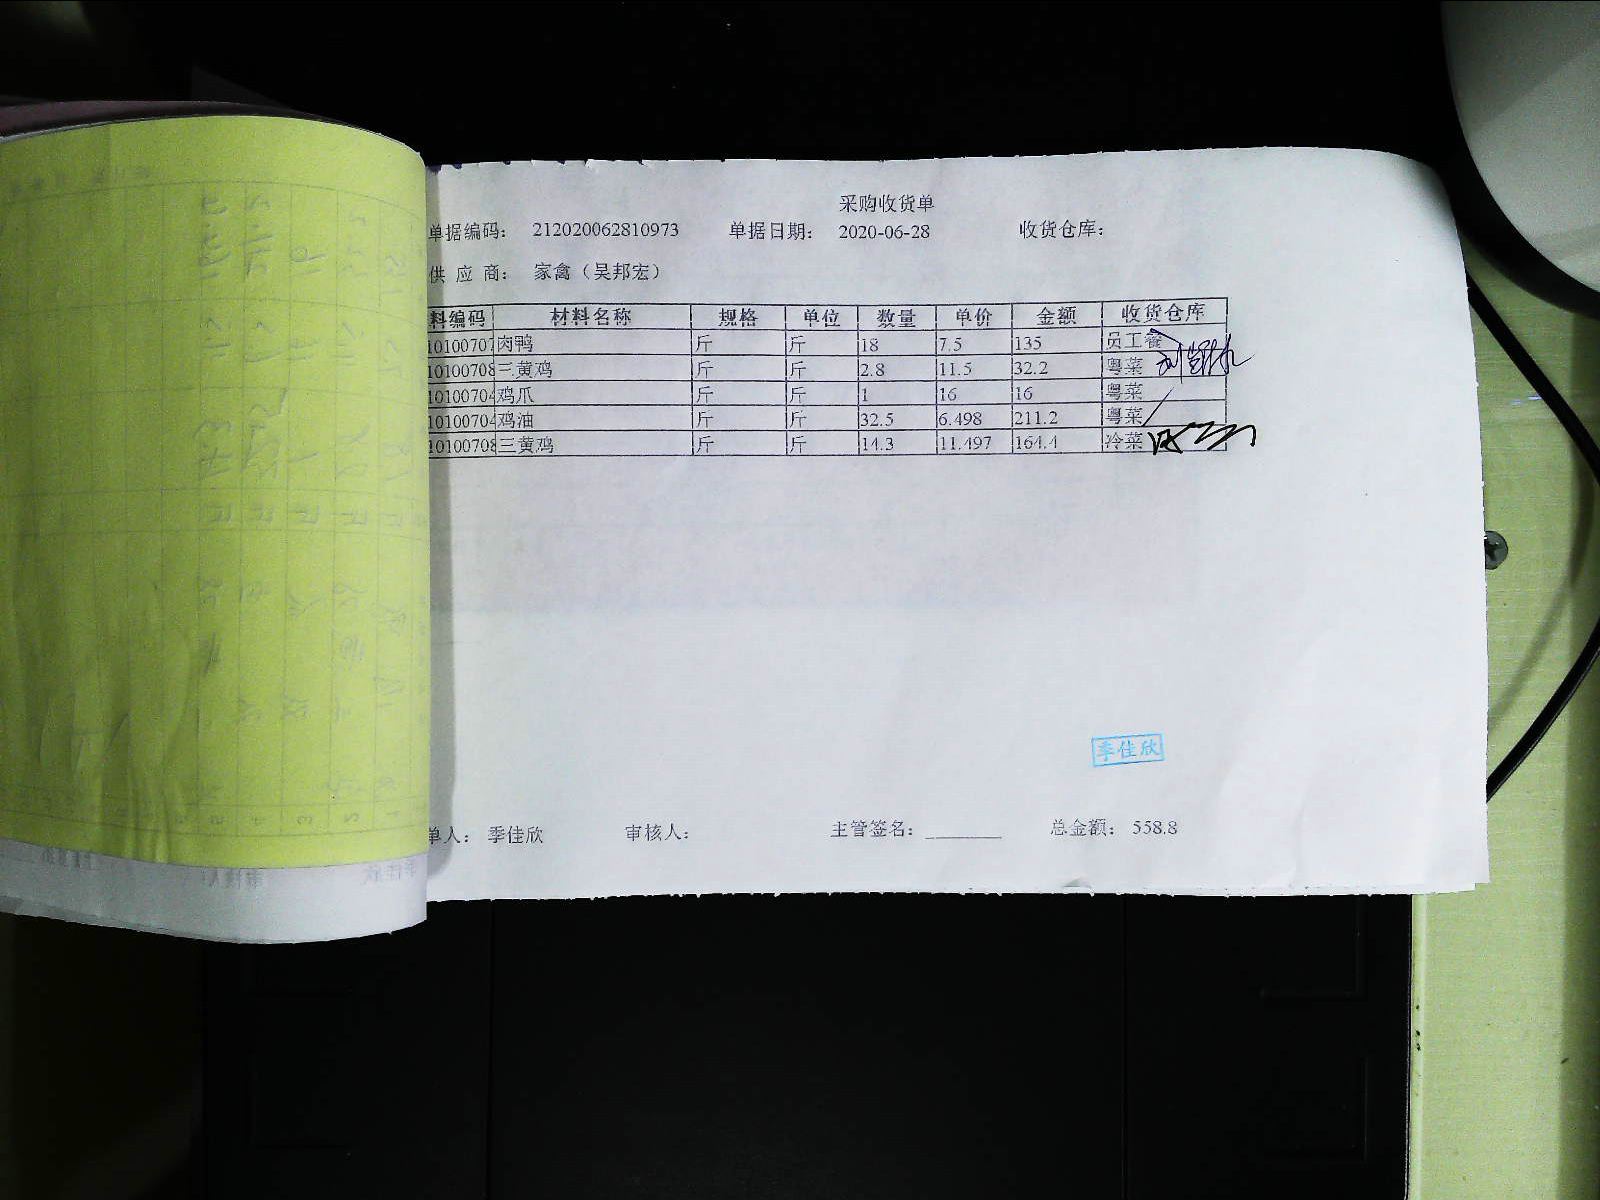 采购收货单
单据编码： 212020062810973 单据日期： 2020-06-28 收货仓库：
供 应 商： 家禽（吴邦宏）
料编码 材料名称 规格 单位 数量 单价 金额 收货仓库
10100707 肉鸭 斤 斤 18 7.5 135 员工餐
10100708 三黄鸡 斤 斤 2.8 11.5 32.2 粤菜
10100704 鸡爪 斤 斤 1 16 16 粤菜
10100704 鸡油 斤 斤 32.5 6.498 211.2 粤菜
10100708 三黄鸡 斤 斤 14.3 11.497 164.4 冷菜
季佳欣
单人： 季佳欣 审核人： 主管签名：________ 总金额： 558.8